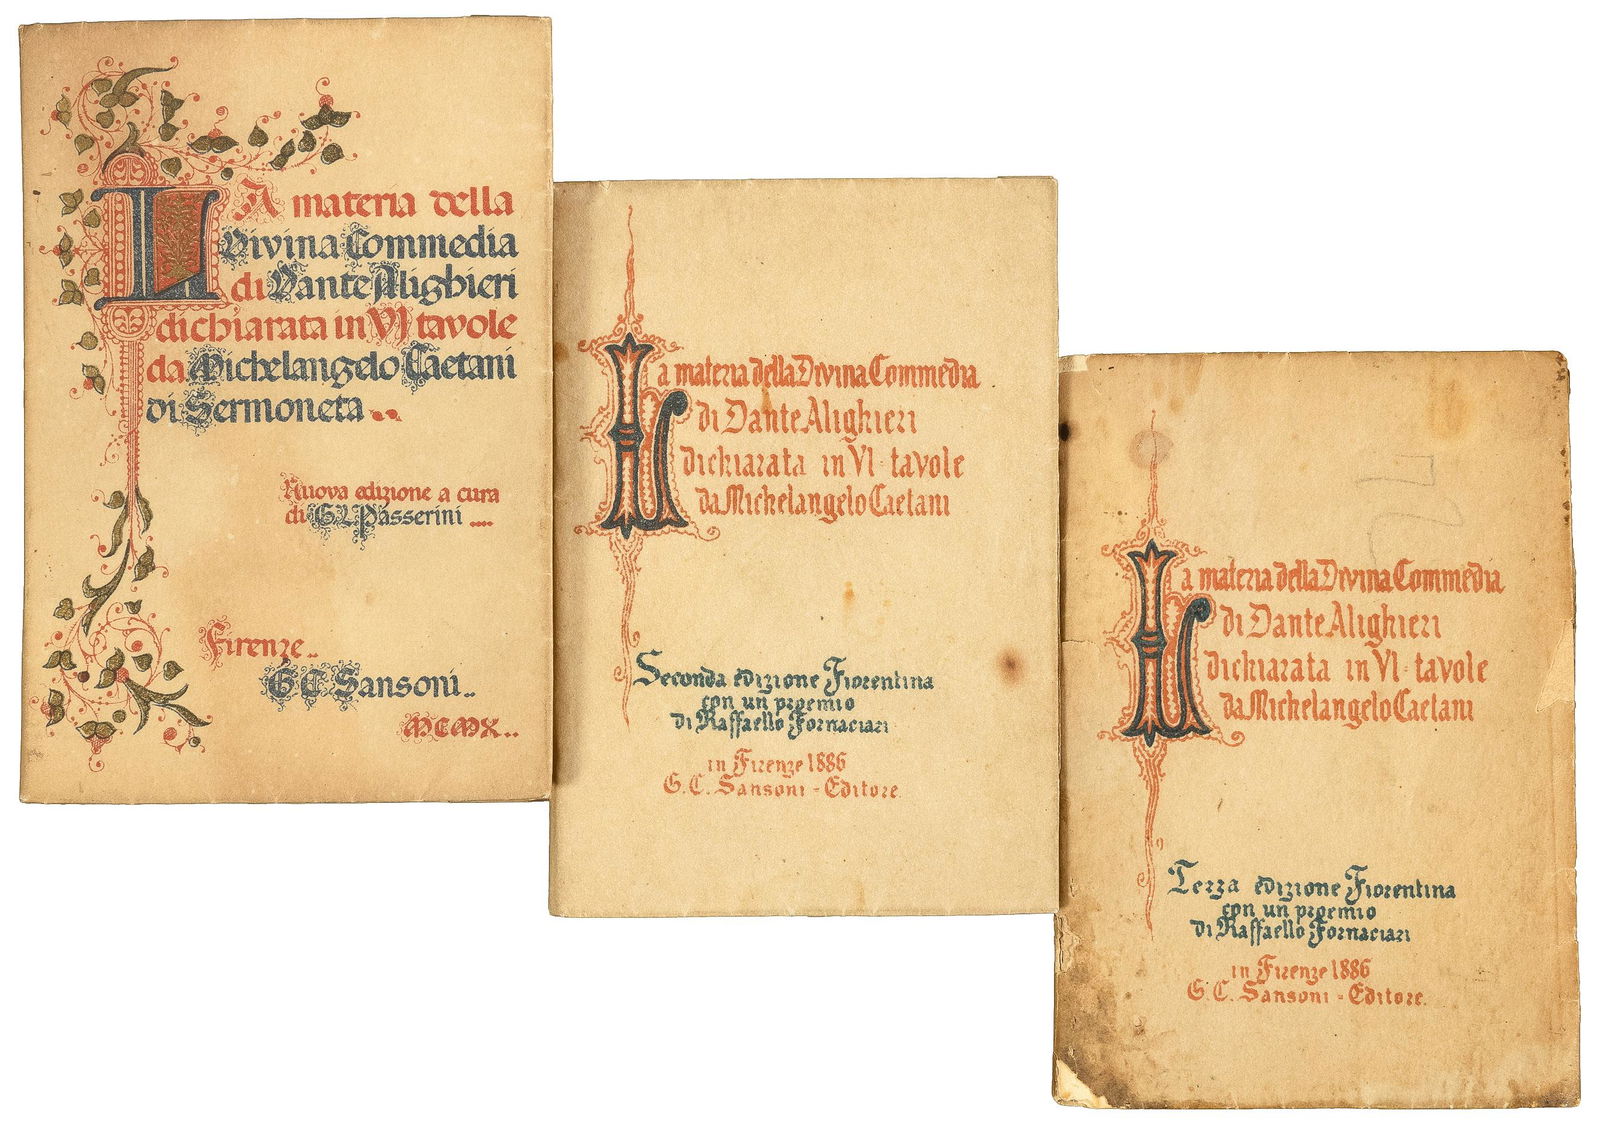 LA materia della
Divina Commedia
di Dante Alighieri
dichiarata in VI tavole
da Michelangelo Caetani
di Sermoneta..
Nuova edizione a cura
di G. L. Passerini ....
Firenze..
G C Sansoni..
MCMX..
La materia della Divina Commedia
di Dante Alighieri
dichiarata in VI tavole
da Michelangelo Caetani
Seconda edizione Fiorentina
con un proemio
di Raffaello Fornaciari
in Firenze 1886
G. C. Sansoni - Editore.
La materia della Divina Commedia
di Dante Alighieri
dichiarata in VI tavole
da Michelangelo Caetani
Terza edizione Fiorentina
con un proemio
di Raffaello Fornaciari
in Firenze 1886
G. C. Sansoni - Editore.